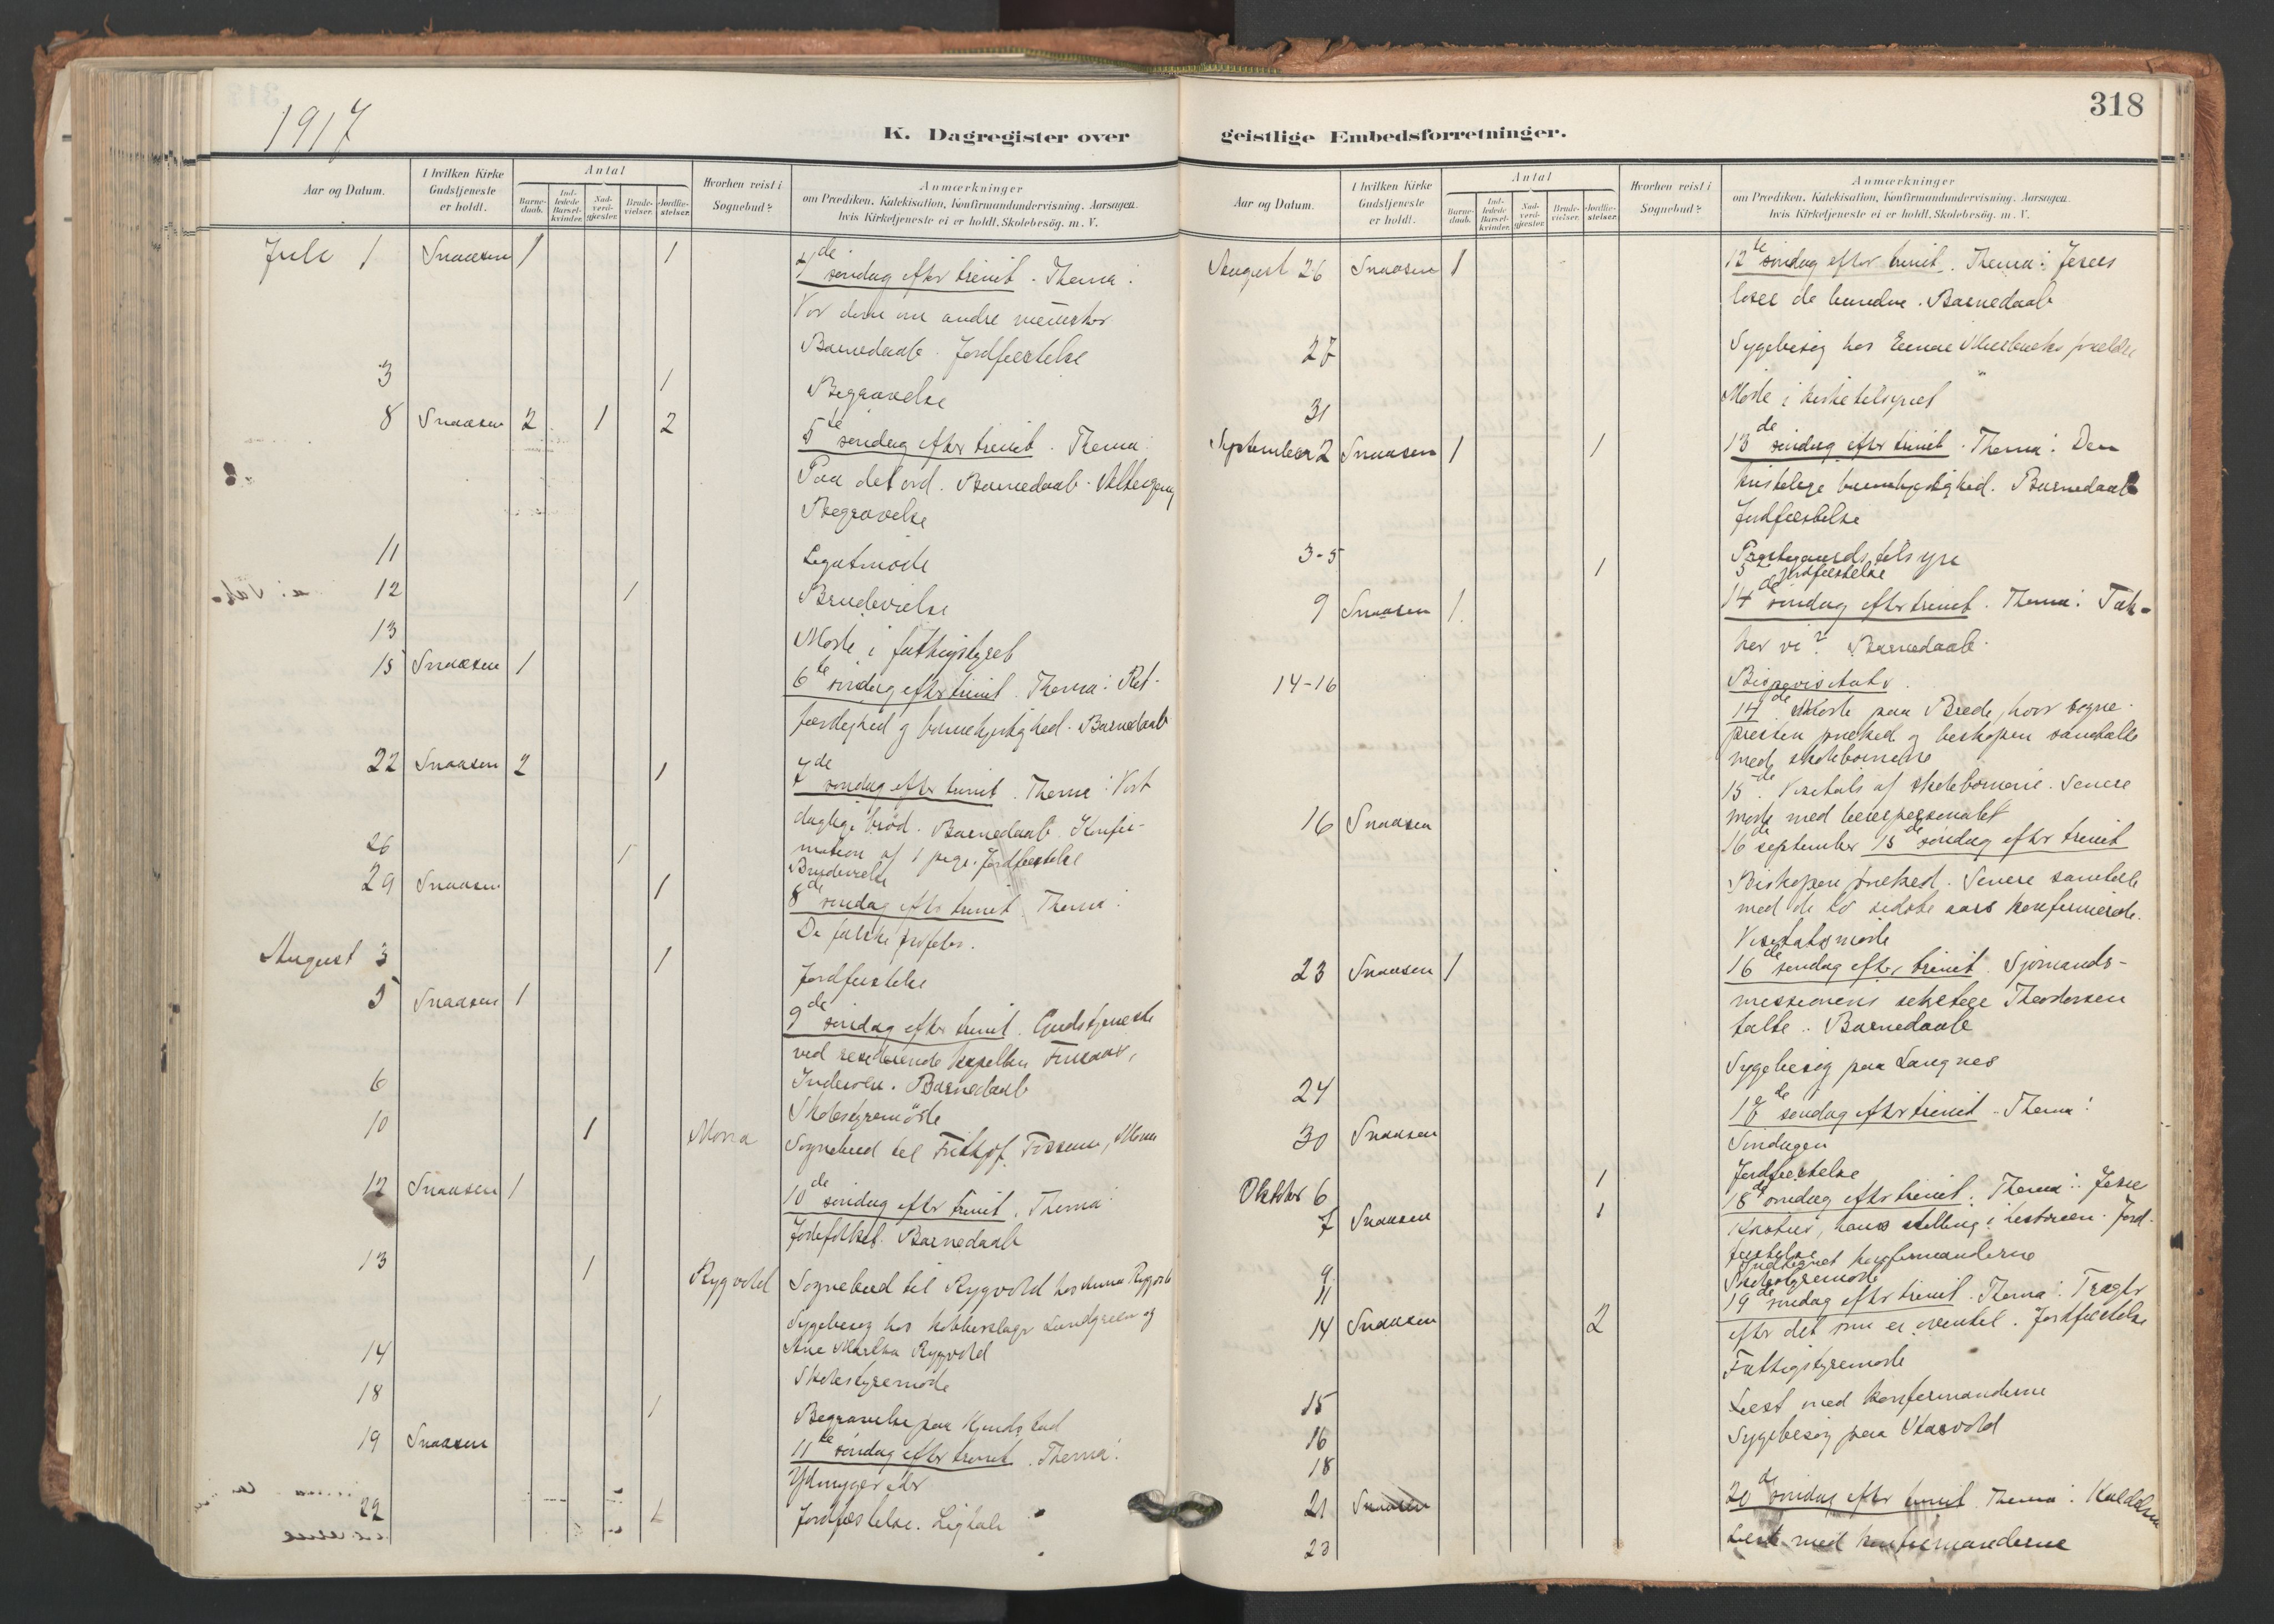 1917
318
K. Dagregister over geistlige Embedsforretninger.
Aar og Datum.
I hvilken Kirke Gudstjeneste er holdt.
Antal
Barnedaab.
Indledede Barselkvinder.
Nadverdgjester.
Brudevielser.
Jordfæstelser.
Hvorhen reist i Sognebud?
Anmærkninger
om Prædiken, Katekisation, Konfirmandundervisning, Aarsagen
hvis Kirketjeneste ei er holdt, Skolebesög. m. V.
Juli 1 Snaasen 1 1 4de søndag efter trinit. Thema:
Vor dom om andre mennesker
Barnedaab. Jordfæstelse
3 1 Begravelse
8 Snaasen 2 1 2 5te søndag efter trinit. Thema:
Paa det ord. Barnedaab. Altergang
Begravelse
11 Legatmøde
12 1 Brudevielse
13 Møde i fattigstyret
15 Snaasen 1 6te søndag efter trinit. Thema: Ret-
færdighed og barmhjertighed. Barnedaab
22 Snaasen 2 1 7de søndag efter trinit. Thema: Vort
daglige brød. Barnedaab. Konfir-
mation af 1 pige. Jordfæstelse
26 1 Brudevielse
29 Snaasen 1 8de søndag efter trinit. Thema:
De falske profeter.
August 3 1 Jordfæstelse
5 Snaasen 1 9de søndag efter trinit. Gudstjeneste
ved residerende kapellan
Inderøen. Barnedaab
6 Skolestyremöde
10 1 Mona Sognebud til Fridtjof
12 Snaasen 1 10de søndag efter trinit. Thema:
Jødefolket. Barnedaab
13 1 Rygvold Sognebud til Rygvold hos
Sygebesøg hos kobberslager Lundgreen og
Ane Martha Rygvold
14 Skolestyremøde
18 1 Begravelse paa
19 Snaasen 11te søndag efter trinit. Thema:
22 1 Jordfæstelse. Ligtale
Aar og Datum.
I hvilken Kirke Gudstjeneste er holdt.
Antal
Barnedaab.
Indledede Barselkvinder.
Nadverdgjester.
Brudevielser.
Jordfæstelser.
Hvorhen reist i Sognebud?
Anmærkninger
om Prædiken, Katekisation, Konfirmandundervisning, Aarsagen
hvis Kirketjeneste ei er holdt, Skolebesög. m. V.
August 26 Snaasen 1 12te søndag efter trinit. Thema: Jesus
løser de bundne. Barnedaab
27 Sygebesøg hos
31 Møde i kirketilsynet
September 2 Snaasen 1 1 13de søndag efter trinit. Thema: Den
kristelige barmhjertighed. Barnedaab
Jordfæstelse
3-5 Prestegaardstilsyn
1 5te jordfæstelse
9 Snaasen 1 14de søndag efter trinit. Thema: Tak-
ker vi? Barnedaab.
14-16 Bispevisitats.
14de Møde paa Brede, hvor sogne-
presten preked og biskopen samtalte
med skolebørnene
15de. Visitats af skolebørnene. Senere
møde med lærerpersonalet
16 Snaasen 16de september 15de søndag efter trinit
Biskopen preked. Senere samtale
med de to sidste aars konfirmerede.
Visitatsmøde
23 Snaasen 1 16de søndag efter trinit. Sjømands-
missionens sekretær Theodorsen
talte. Barnedaab
24 Sygebesøg paa Langnes
30 Snaasen 17de søndag efter trinit. Thema:
Søndagen
Oktober 6 1 Jordfæstelse
7 Snaasen 1 18de søndag efter trinit. Thema: Jesu
Kristus, hans stilling i historien. Jord-
fæstelse
9 Indtegnet konfirmanderne
11 Skolestyremøde
14 Snaasen 2 19de søndag efter trinit. Thema: Tragter
efter det som er oventil. Jordfæstelse
15 Fattigstyremøde
16 Læst med konfirmanderne
18 Sygebesøg paa
21 Snaasen 20de søndag efter trinit. Thema:
23 Læst med konfirmanderne